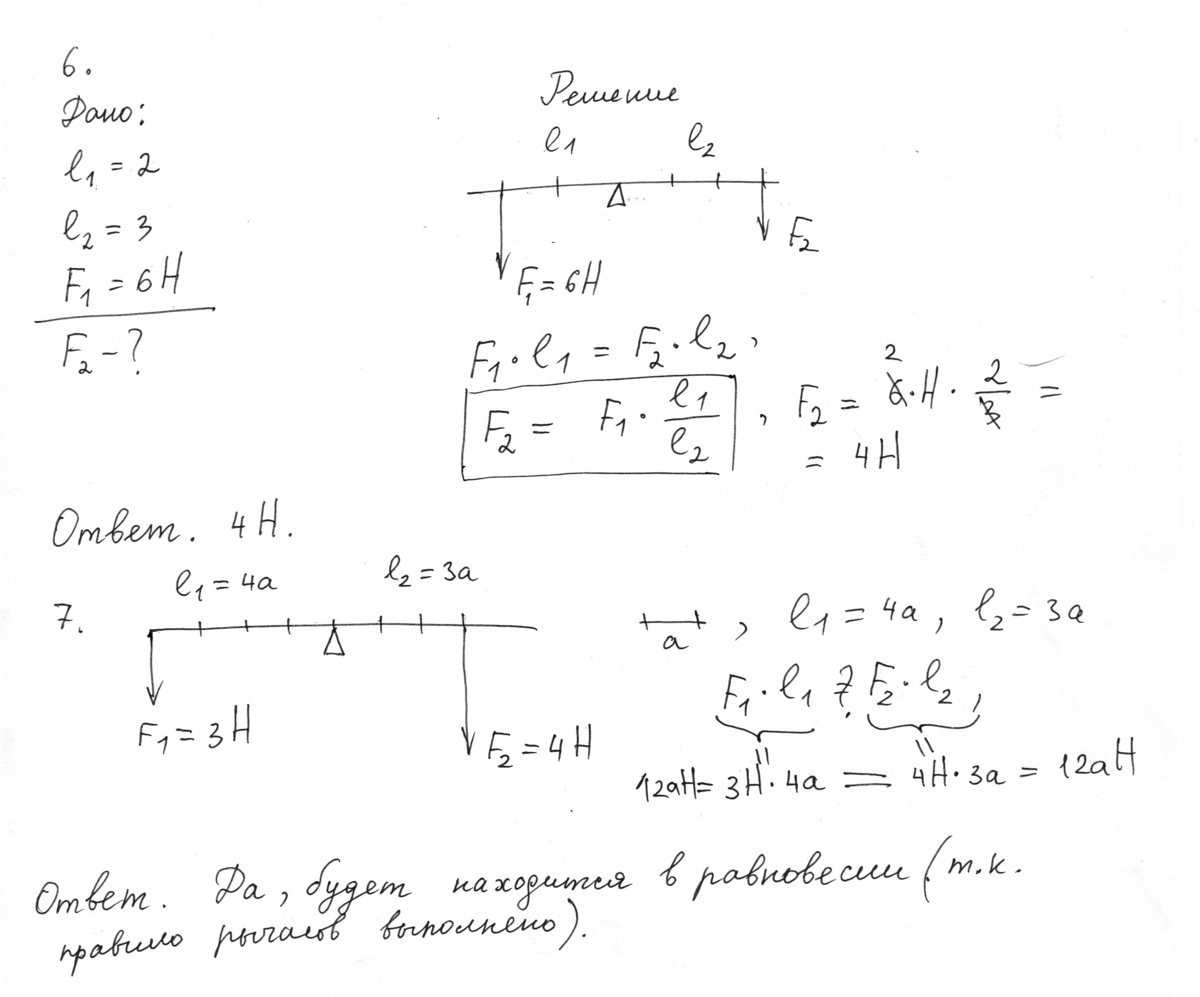 6.
Дано:
l₁ = 2
l₂ = 3
F₁ = 6Н
F₂ – ?
Решение
l₁ l₂
F₂
F₁ = 6Н
F₁ · l₁ = F₂ · l₂ ,
F₂ = F₁ · l₁/l₂ , F₂ = 6·Н · 2/3 =
2
= 4Н
Ответ. 4Н.
7.
l₁ = 4а l₂ = 3а
F₁ = 3Н
F₂ = 4Н
а , l₁ = 4а , l₂ = 3а
F₁ · l₁ ? F₂ · l₂ ,
12аН = 3Н · 4а = 4Н · 3а = 12аН
Ответ. Да, будет находится в равновесии (т.к.
правило рычагов выполнено).